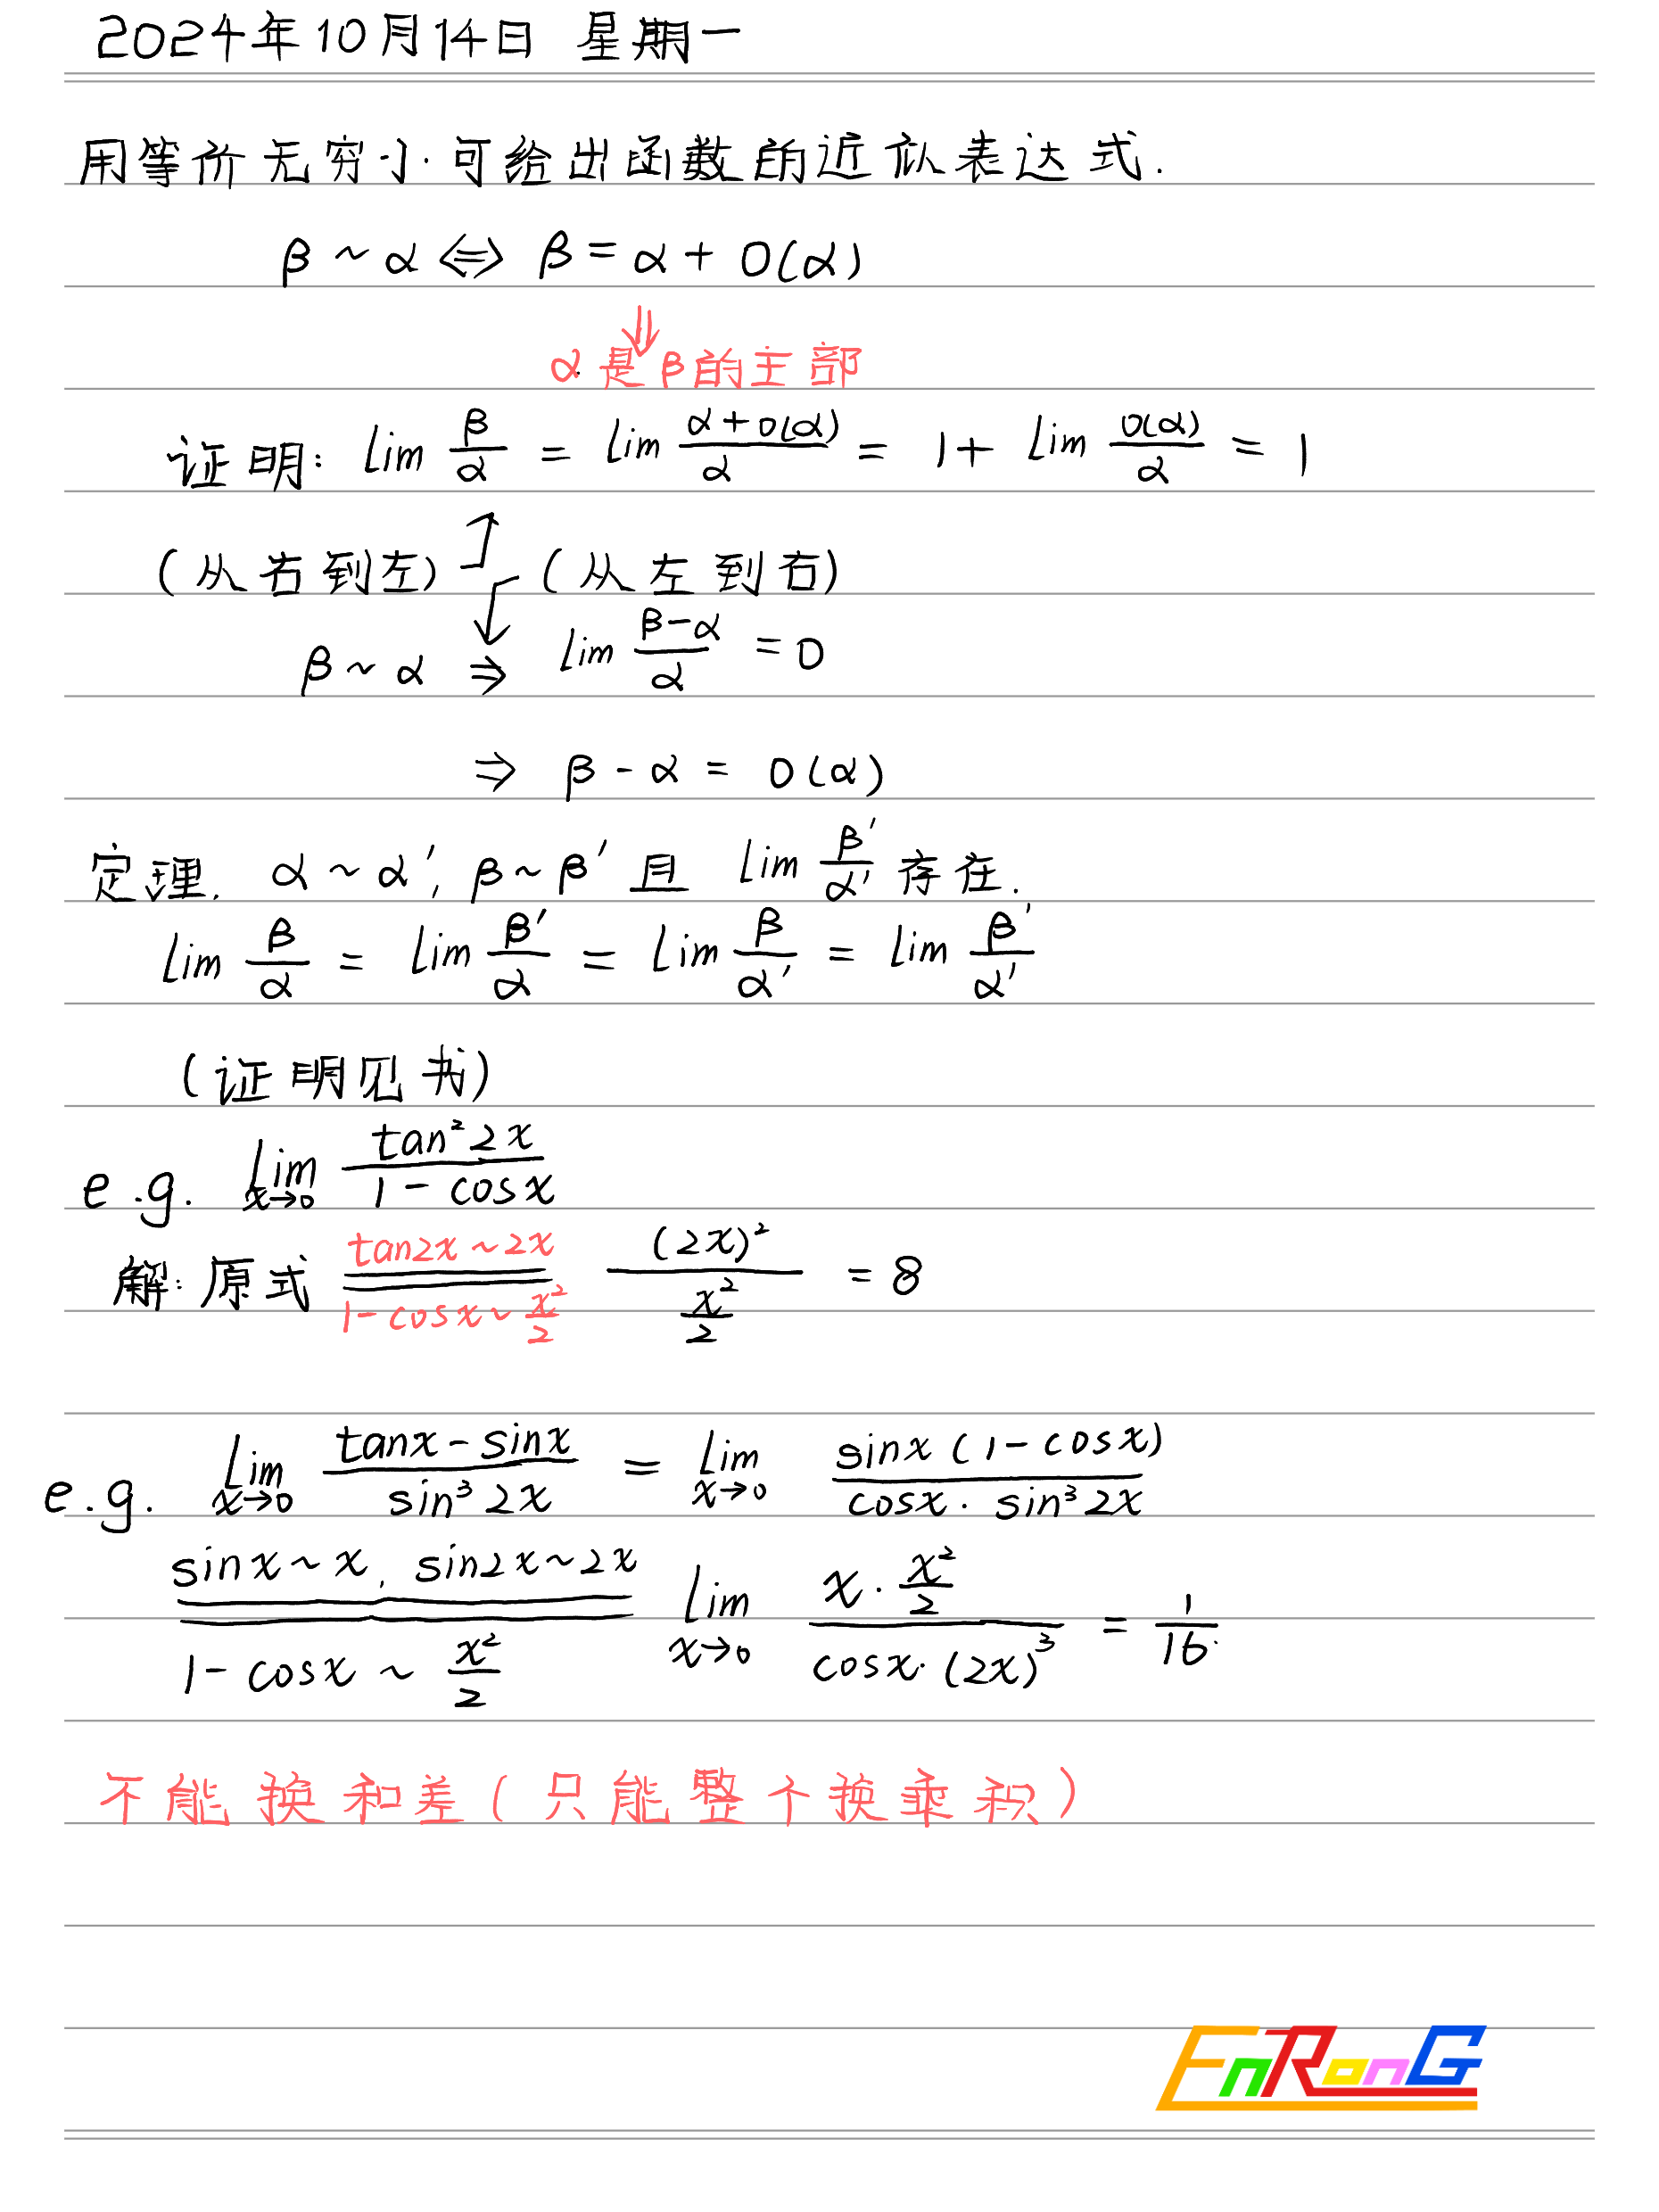 2024年10月14日 星期一
用等价无穷小.可给出函数的近似表达式.
β ~ α ⇔ β = α + o(α)
⇓
α是β的主部
证明: lim β/α = lim (α+o(α))/α = 1 + lim o(α)/α = 1
(从右到左) (从左到右)
β ~ α ⇒ lim (β-α)/α = 0
⇒ β - α = o(α)
定理. α ~ α', β ~ β' 且 lim β'/α' 存在.
lim β/α = lim β'/α = lim β/α' = lim β'/α'
(证明见书)
e.g. lim x→0 tan²2x/(1-cosx)
解: 原式 tan2x~2x 1-cosx~x²/2 (2x)²/(x²/2) = 8
e.g. lim x→0 (tanx-sinx)/sin³2x = lim x→0 sinx(1-cosx)/(cosx·sin³2x)
sinx~x, sin2x~2x 1-cosx~x²/2 lim x→0 (x·x²/2)/(cosx·(2x)³) = 1/16.
不能换和差(只能整个换乘积)
EnRonG